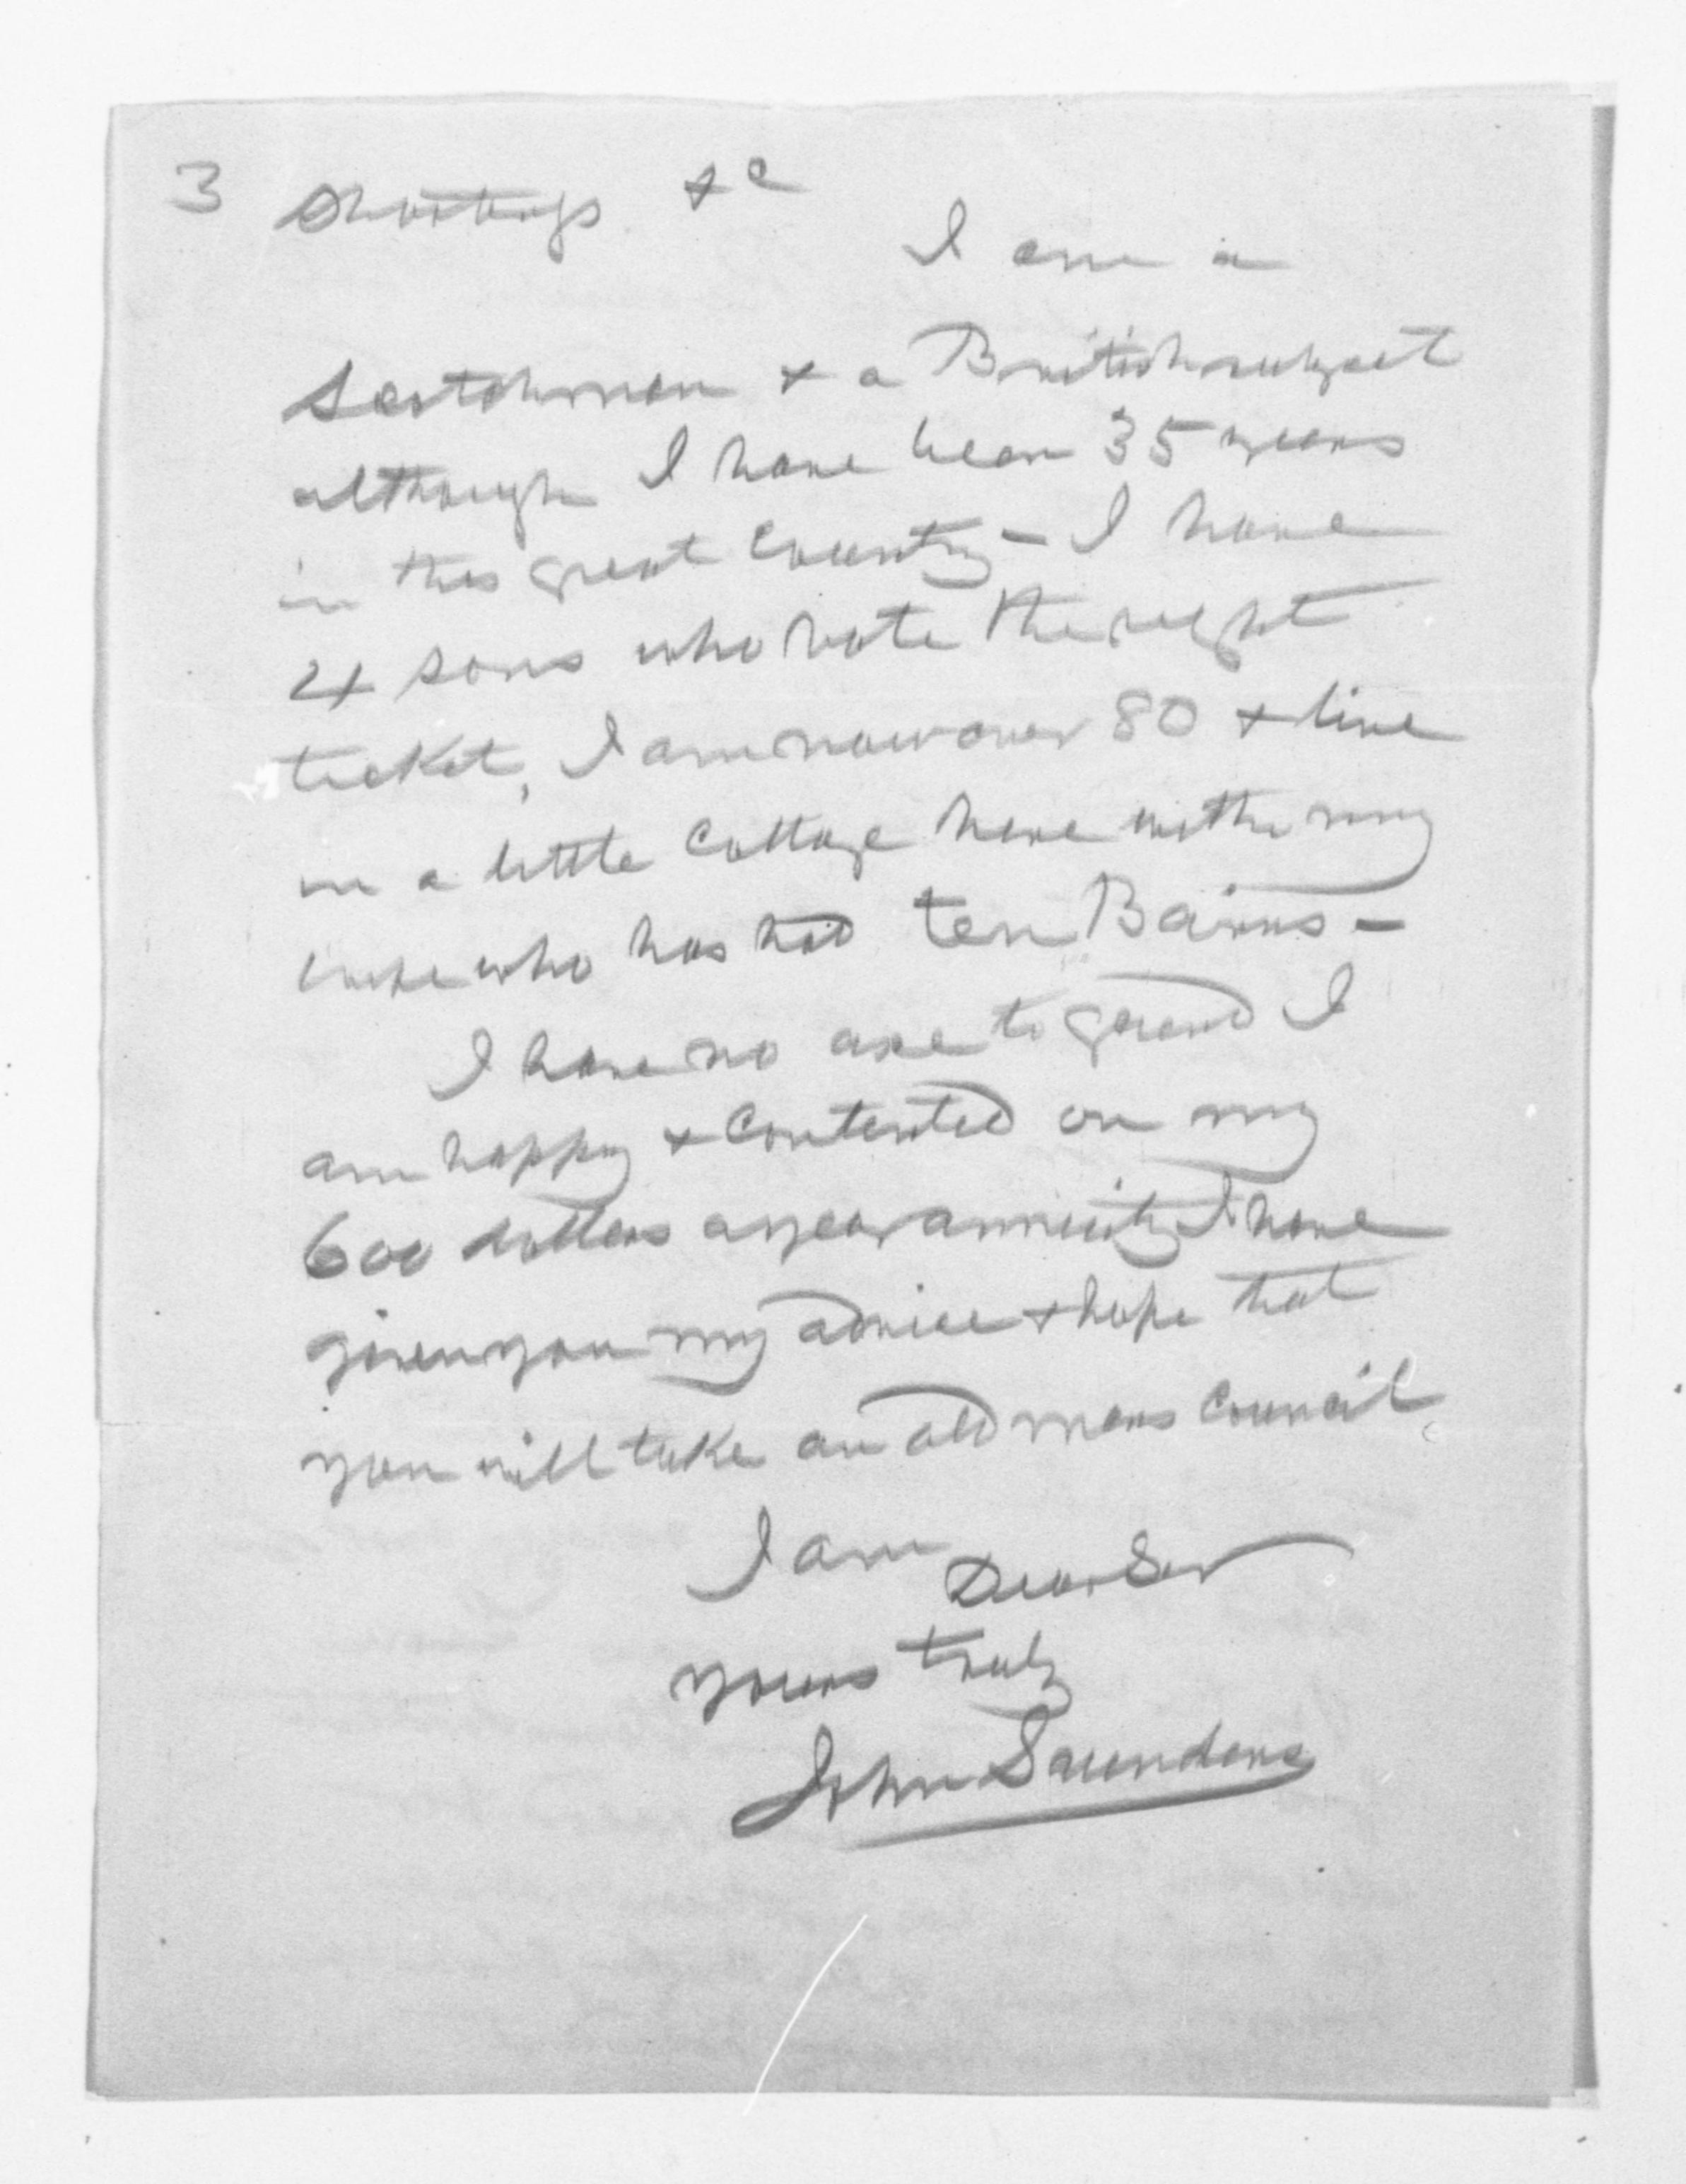 3 Shootings &c
I am a
Scotchman & a British subject
although I have been 35 years
in this great Country - I have
4 sons who vote the right
ticket, I am now over 80 & live
in a little Cottage here with my
wife who has had ten Bairns -
I have no axe to grind I
am happy & Contented on my
600 dollars a year annuity I have
given you my advice & hope that
you will take an old mans Council
I am Dear Sir
yours truly
John Saunders